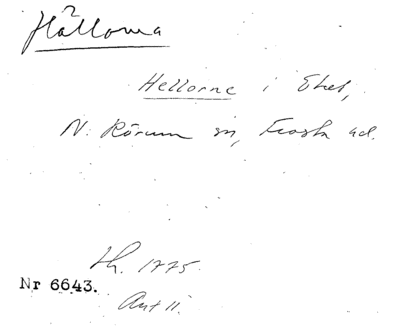 Hållorna
Hellorne i Ekes,
N. Rörum sn, Frosta hd.
lh. 1775.
Nr 6643.
Ant 11.